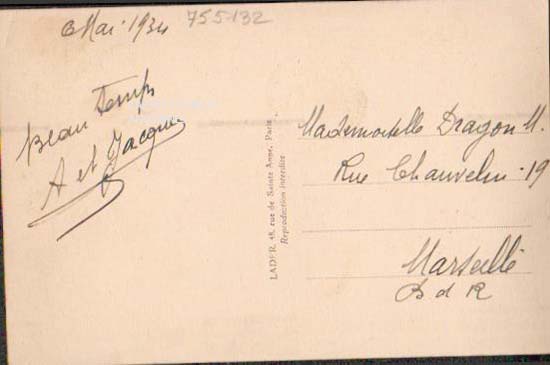 6 Mai 1934
755132
Beau Temps
A et Jacques
LADER, 48, rue de Sainte Anne, Paris
Reproduction interdite
Mademoiselle Dragon M.
Rue Chauvelin 19
Marseille
B d R